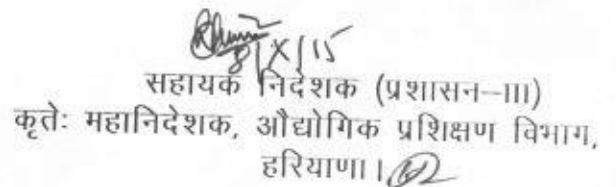 8/X/15
सहायक निदेशक (प्रशासन–III)
कृतेः महानिदेशक, औद्योगिक प्रशिक्षण विभाग,
हरियाणा।